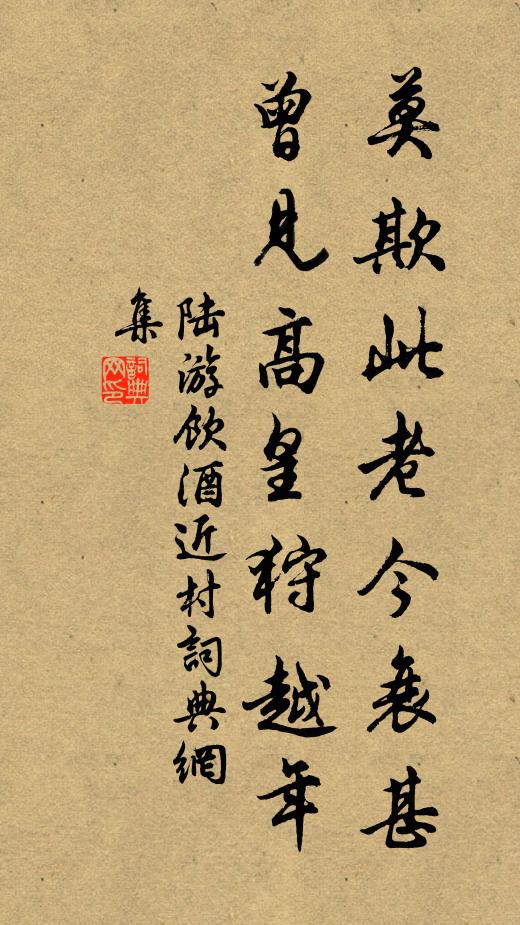 莫欺此老今衰甚
曾見高皇狩越年
陆游飲酒近村詞典網
集
詞典
网印